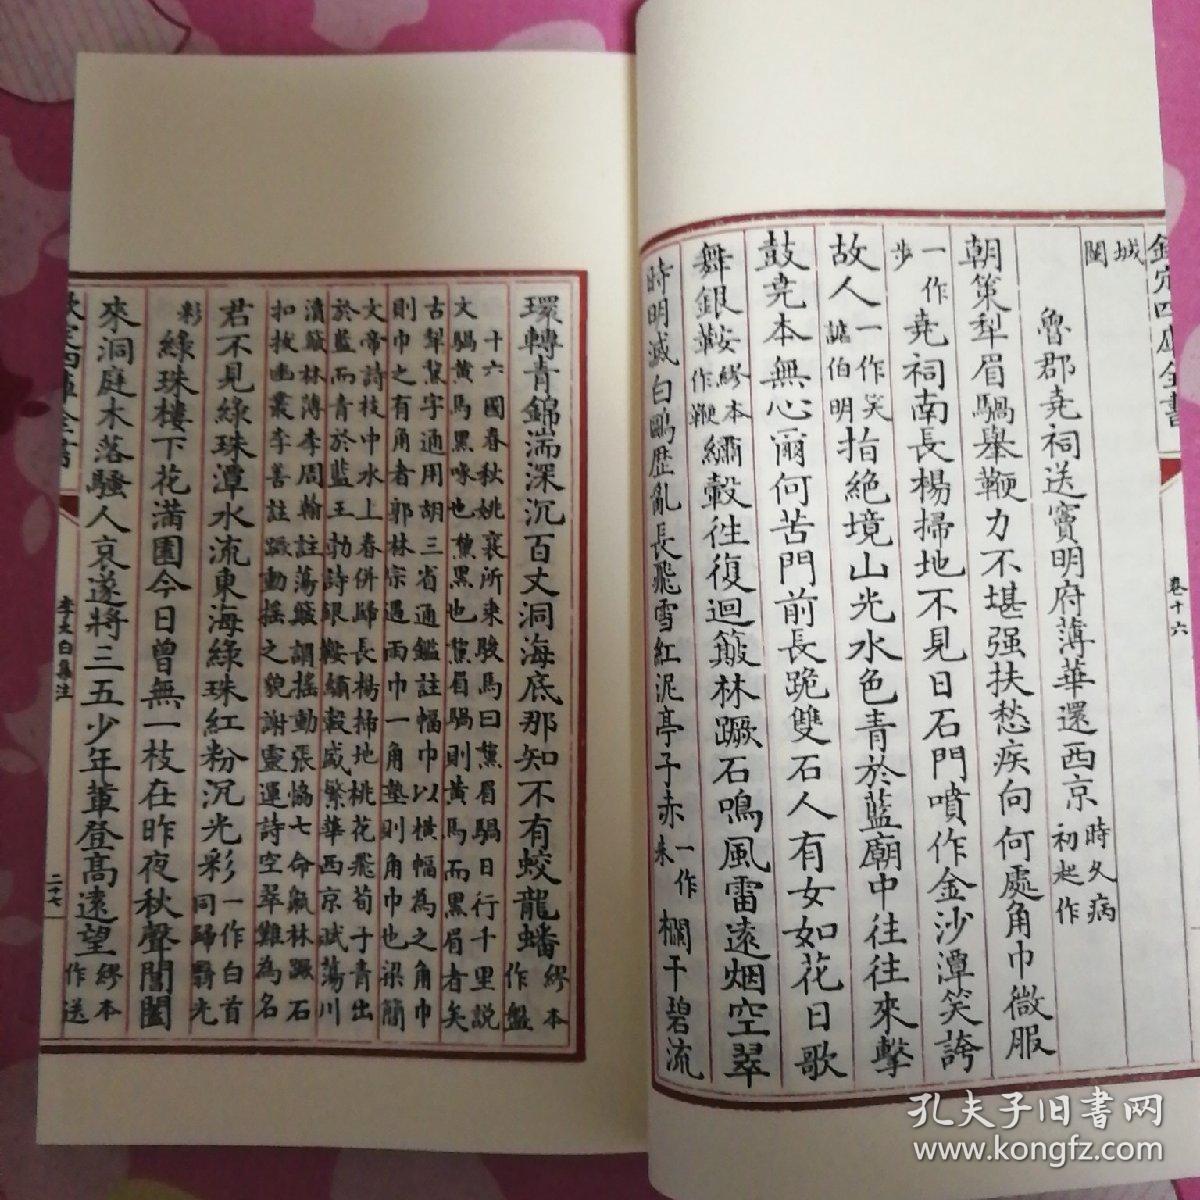 欽定四庫全書
卷十六
城
闕
魯郡堯祠送竇明府薄華還西京
時久病
初起作
朝策犂眉騧舉鞭力不堪强扶愁疾向何處角巾微服
一作
步
堯祠南長楊掃地不見日石門噴作金沙潭笑誇
故人
一作笑
誰伯明
指絶境山光水色青於藍廟中往往來擊
鼓堯本無心爾何苦門前長跪雙石人有女如花日歌
舞銀鞍
繆本
作鞭
繡轂往復迴簸林蹶石鳴風雷遠烟空翠
時明滅白鷗歴亂長飛雪紅泥亭子赤
一作
朱
欄干碧流
環轉青錦湍深沉百丈洞海底那知不有蛟龍蟠
繆本
作盤
十六國春秋姚襄所乗駿馬曰黧眉騧日行千里説
文騧黄馬黑喙也黧黑也黧眉騧則黄馬而黑眉者矣
古犂黧字通用胡三省通鑑註幅巾以横幅為之角巾
則巾之有角者郭林宗遇雨巾一角墊則角巾也梁簡
文帝詩枝中水上春併歸長楊掃地桃花飛荀子青出
於藍而青於藍王勃詩銀鞍繡轂盛繁華西京賦蕩川
瀆簸林薄李周翰註蕩簸謂揺動張恊七命㠨林蹶石
扣拔幽叢李善註蹶動揺之貌謝靈運詩空翠難為名
君不見綠珠潭水流東海綠珠紅粉沉光彩
一作白首
同歸翳光
彩
綠珠樓下花滿園今日曾無一枝在昨夜秋聲閶闔
來洞庭木落騷人哀遂將三五少年輩登髙遠望
繆本
作送
欽定四庫全書
李太白集注
二十七
孔夫子旧书网
www.kongfz.com